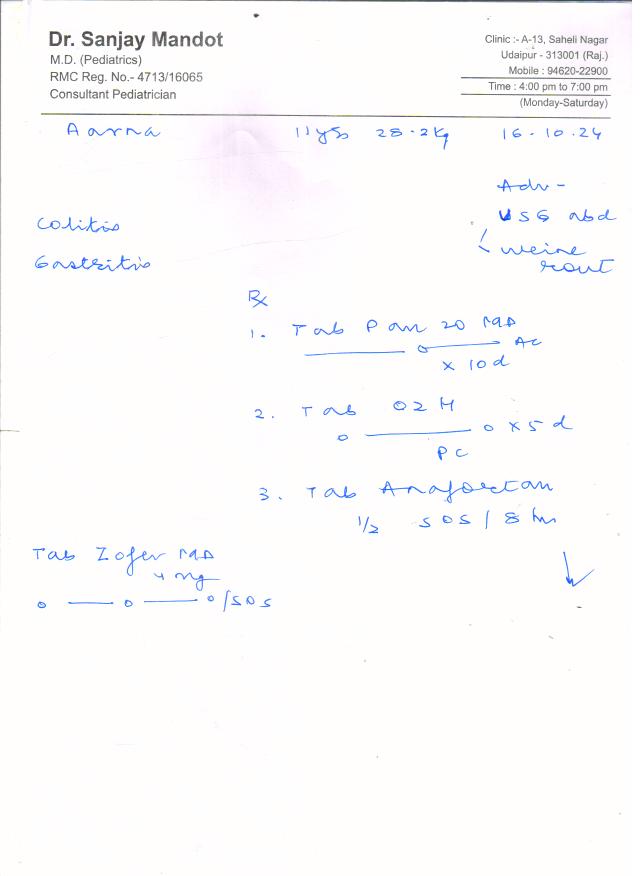 Dr. Sanjay Mandot
M.D. (Pediatrics)
RMC Reg. No.- 4713/16065
Consultant Pediatrician
Clinic :- A-13, Saheli Nagar
Udaipur - 313001 (Raj.)
Mobile : 94620-22900
Time : 4:00 pm to 7:00 pm
(Monday-Saturday)
Aarna 11 yrs 28.2 kg 16.10.24
Adv -
USG abd
urine
rout
Colitis
Gastritis
Rx
1. Tab Pan 20 mg
AC
x 10 d
2. Tab O2 M
o — o x 5 d
PC
3. Tab Anafortan
1/2 SOS / 8 hr
Tab Zofer MD
4 mg
o — o — o /SOS